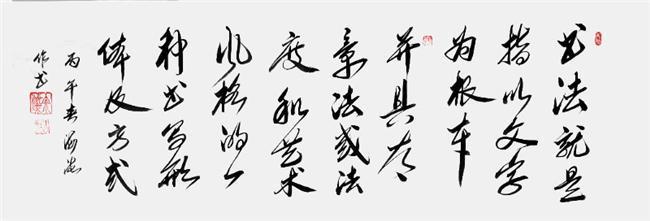 书法就是
指以文字
为根本
并具有
章法或法
度和艺术
风格的一
种书写形
体及方式
丙午春
作书